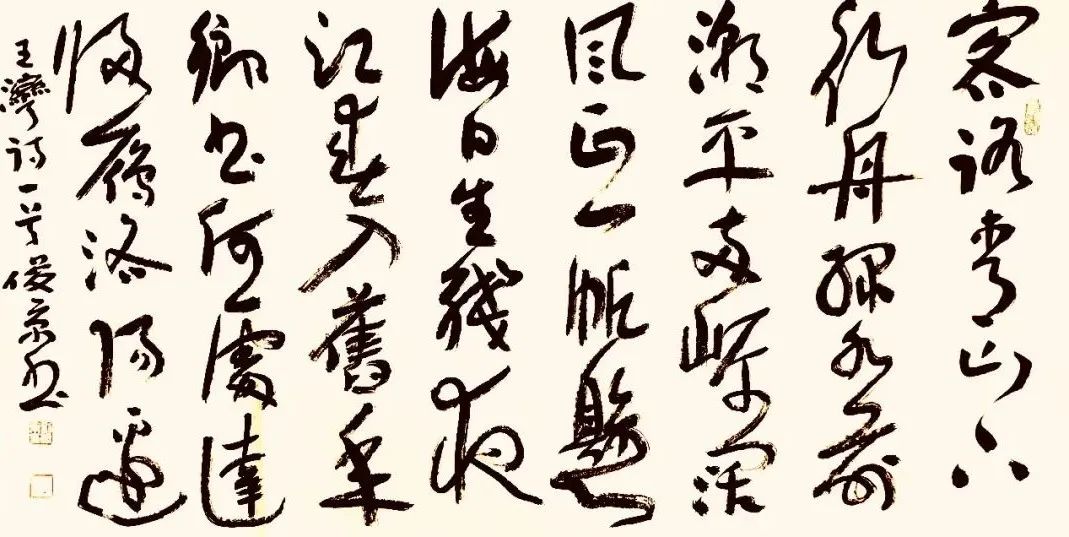 客路青山下
行舟綠水前
潮平兩岸闊
風正一帆懸
海日生殘夜
江春入舊年
鄉書何處達
歸雁洛陽邊
王灣詩一首俊京書